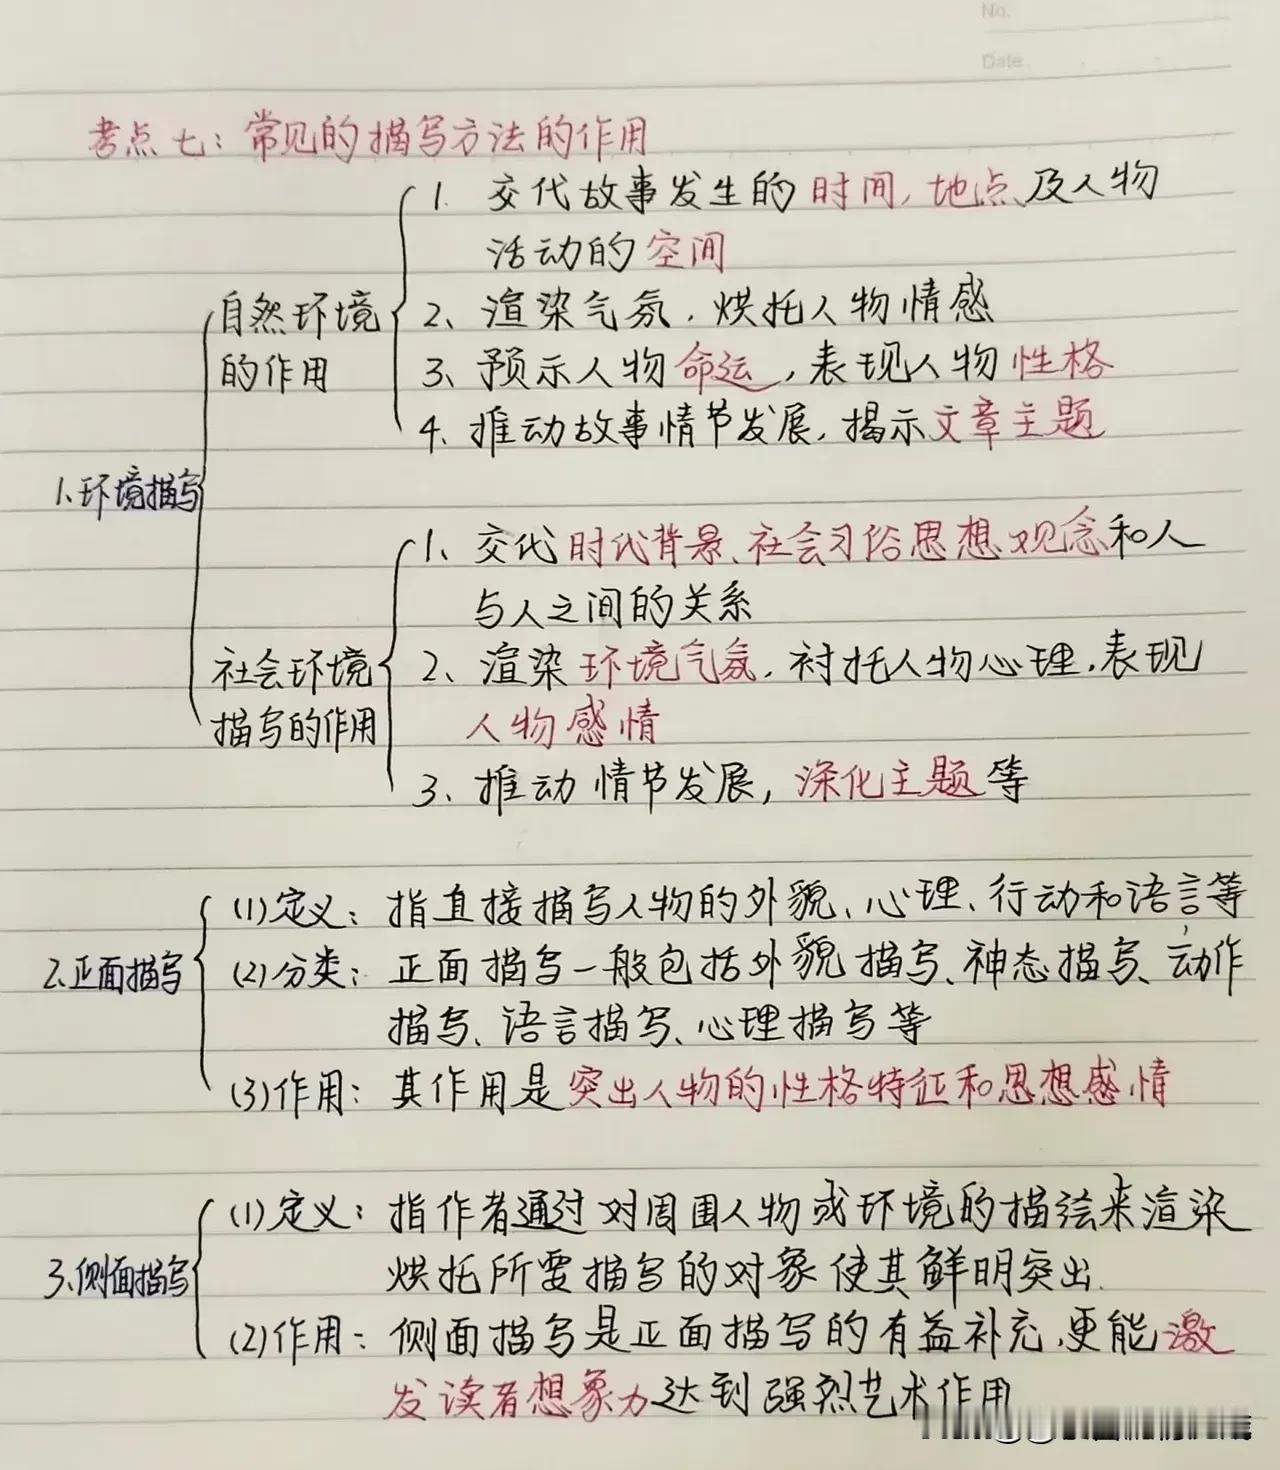 No.
Date
考点七：常见的描写方法的作用
1.环境描写
自然环境
的作用
1. 交代故事发生的时间，地点及人物
活动的空间
2、渲染气氛，烘托人物情感
3、预示人物命运，表现人物性格
4、推动故事情节发展，揭示文章主题
社会环境
描写的作用
1、交代时代背景、社会习俗思想观念和人
与人之间的关系
2、渲染环境气氛，衬托人物心理，表现
人物感情
3、推动情节发展，深化主题等
2.正面描写
(1)定义：指直接描写人物的外貌、心理、行动和语言等
(2)分类：正面描写一般包括外貌描写、神态描写、动作
描写、语言描写、心理描写等
(3)作用：其作用是突出人物的性格特征和思想感情
3.侧面描写
(1)定义：指作者通过对周围人物或环境的描绘来渲染
烘托所要描写的对象使其鲜明突出.
(2)作用：侧面描写是正面描写的有益补充，更能激
发读者想象力达到强烈艺术作用